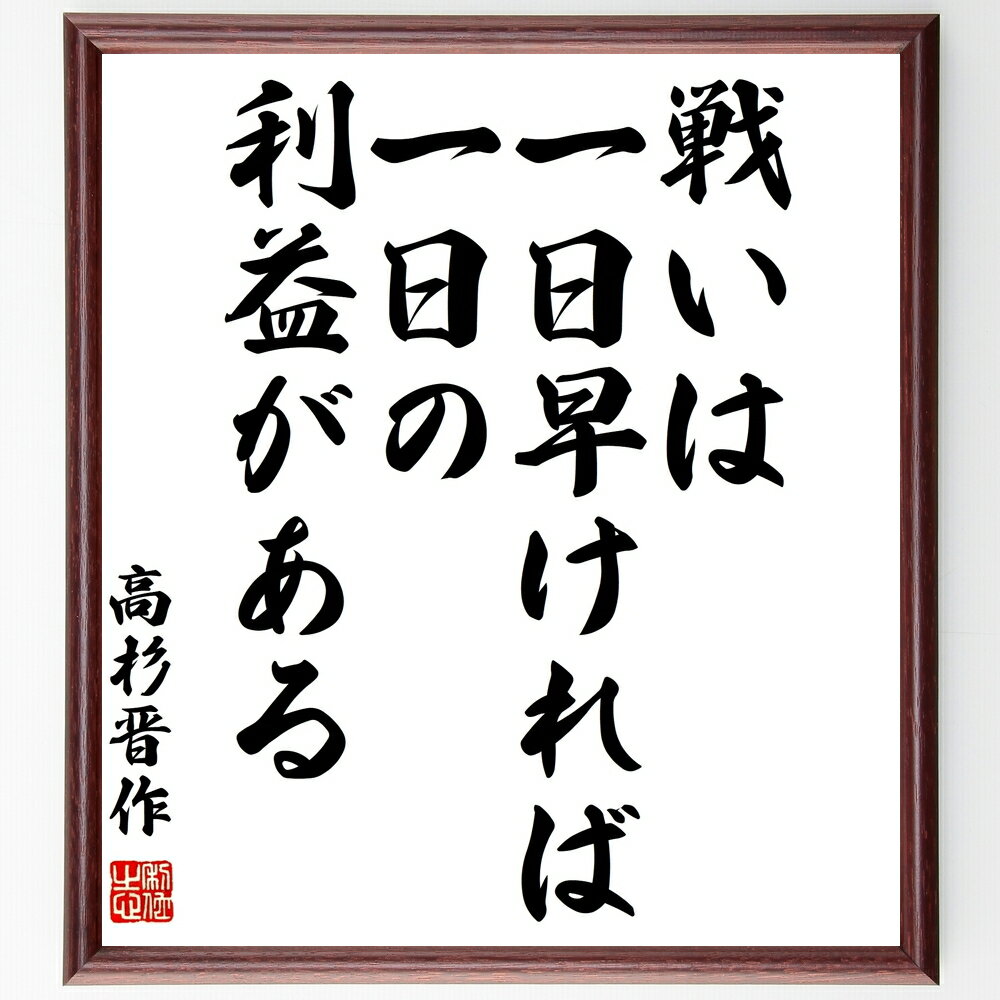 戦いは
一日早ければ
一日の
利益がある
高杉晋作